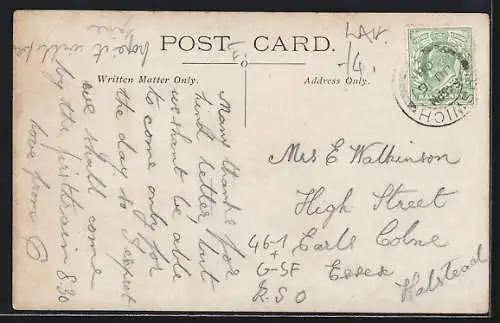 hope it will be
fine
POST CARD.
Written Matter Only.
Address Only.
LAV.
-/4.
Many thanks for
kind letter, but
we shant be able
to come only for
the day so I expect
we shall come
by the first train 8.30
love from C
Mrs E Walkinson
High Street
Earls Colne
Essex
Halstead
R.S.O
461
+
G-SF